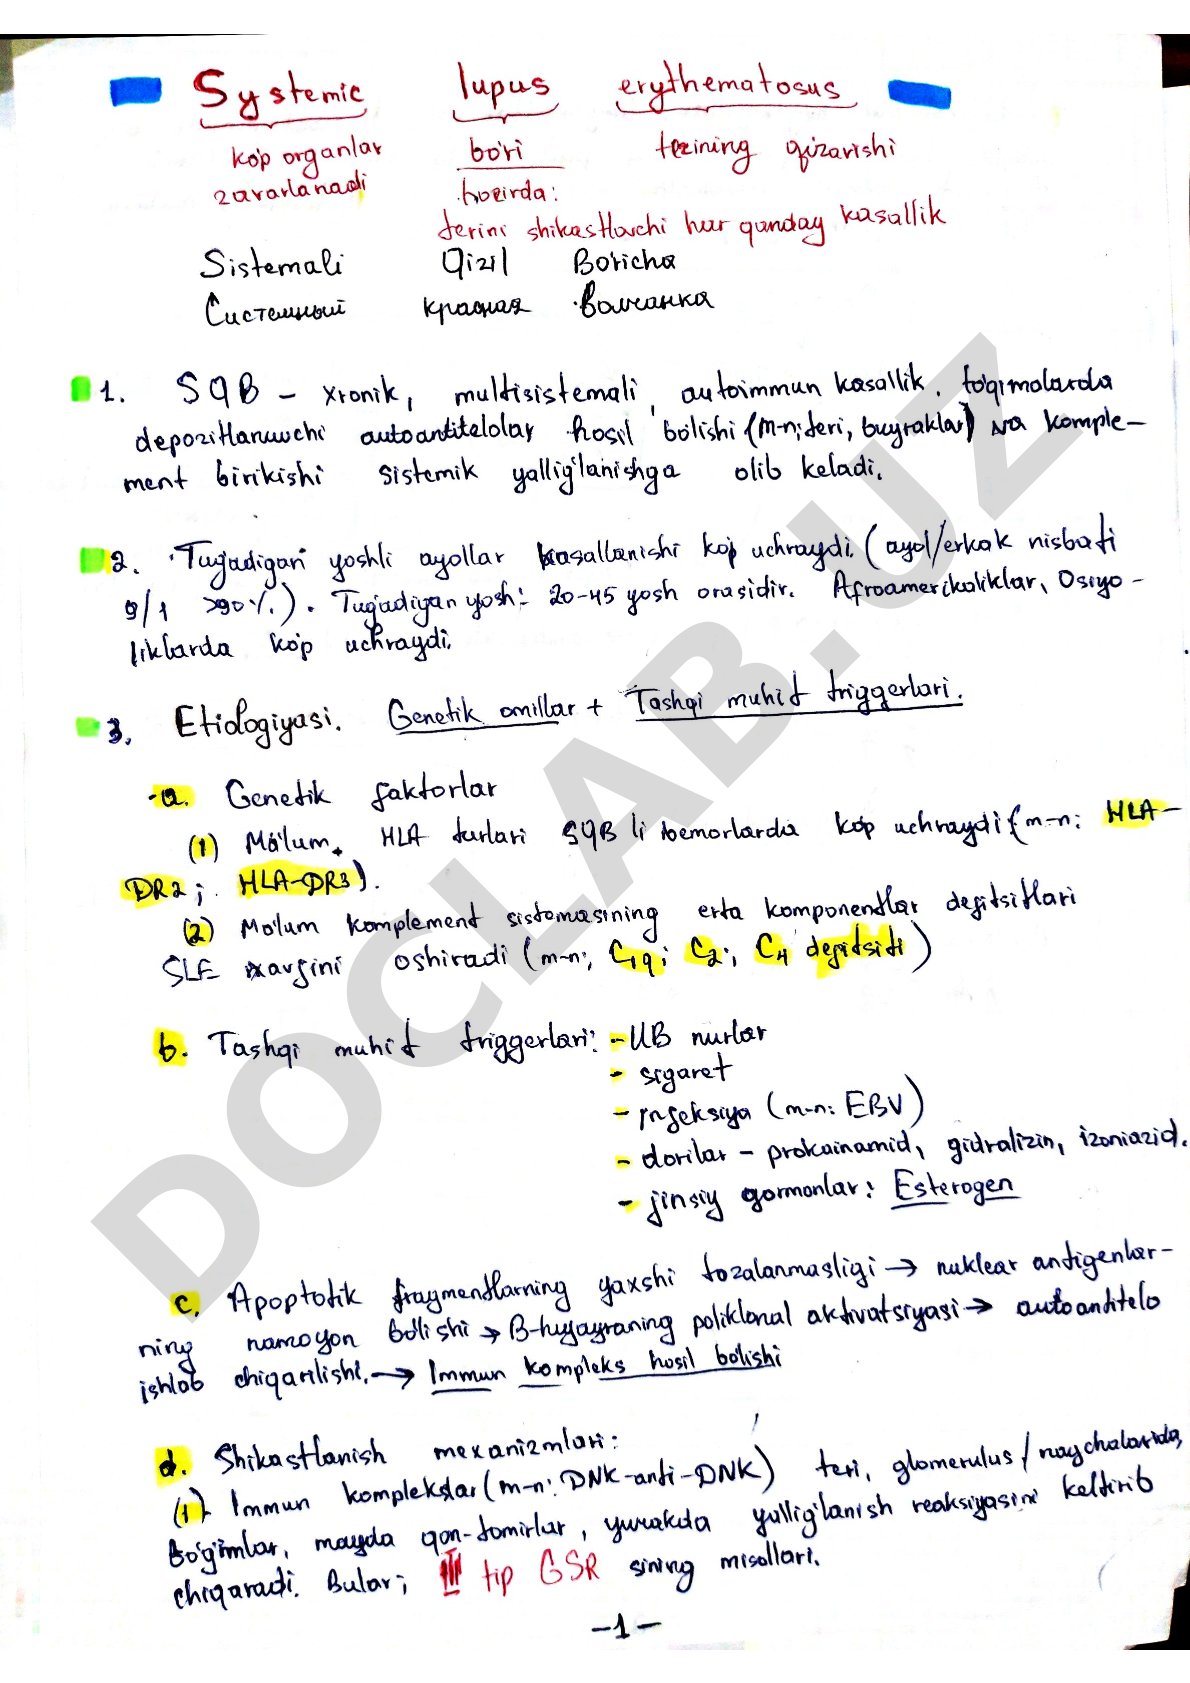 Systemic lupus erythematosus
ko'p organlar bo'ri terining qizarishi
zararlanadi hozirda:
terini shikastlovchi har qanday kasallik
Sistemali Qizil Bo'richa
Системный красная волчанка
1. SQB - xronik, multisistemali, autoimmun kasallik. to'qimalarda
depozitlanuvchi autoantitelolar hosil bo'lishi (m-n; teri, buyraklar) va komple-
ment birikishi sistemik yallig'lanishga olib keladi.
2. Tug'adigan yoshli ayollar kasallanishi ko'p uchraydi. (ayol/erkak nisbati
9/1 >90%.). Tug'adigan yosh: 20-45 yosh orasidir. Afroamerikaliklar, Osiyo-
liklarda ko'p uchraydi.
3. Etiologiyasi. Genetik omillar + Tashqi muhit triggerlari.
a. Genetik faktorlar
(1) Ma'lum HLA turlari SQB li bemorlarda ko'p uchraydi (m-n: HLA-
DR2; HLA-DR3).
(2) Ma'lum komplement sistemasining erta komponentlar defitsitlari
SLE xavfini oshiradi (m-n; C1q; C2; C4 defitsiti)
b. Tashqi muhit triggerlari: - UB nurlar
- sigaret
- infeksiya (m-n: EBV)
- dorilar - prokainamid, gidralizin, izoniazid.
- jinsiy gormonlar: Esterogen
c. Apoptotik fragmentlarning yaxshi tozalanmasligi → nuklear antigenlar-
ning namoyon bo'lishi → B-hujayraning poliklonal aktivatsiyasi → autoantitelo
ishlab chiqarilishi. → Immun kompleks hosil bo'lishi
d. Shikastlanish mexanizmlari:
(1) Immun komplekslar (m-n: DNK-anti-DNK) teri, glomerulus/naychalarida,
bo'g'imlar, mayda qon-tomirlar, yurakda yallig'lanish reaksiyasini keltirib
chiqaradi. Bular; III tip GSR sining misollari.
-1-
DOCLAB.UZ